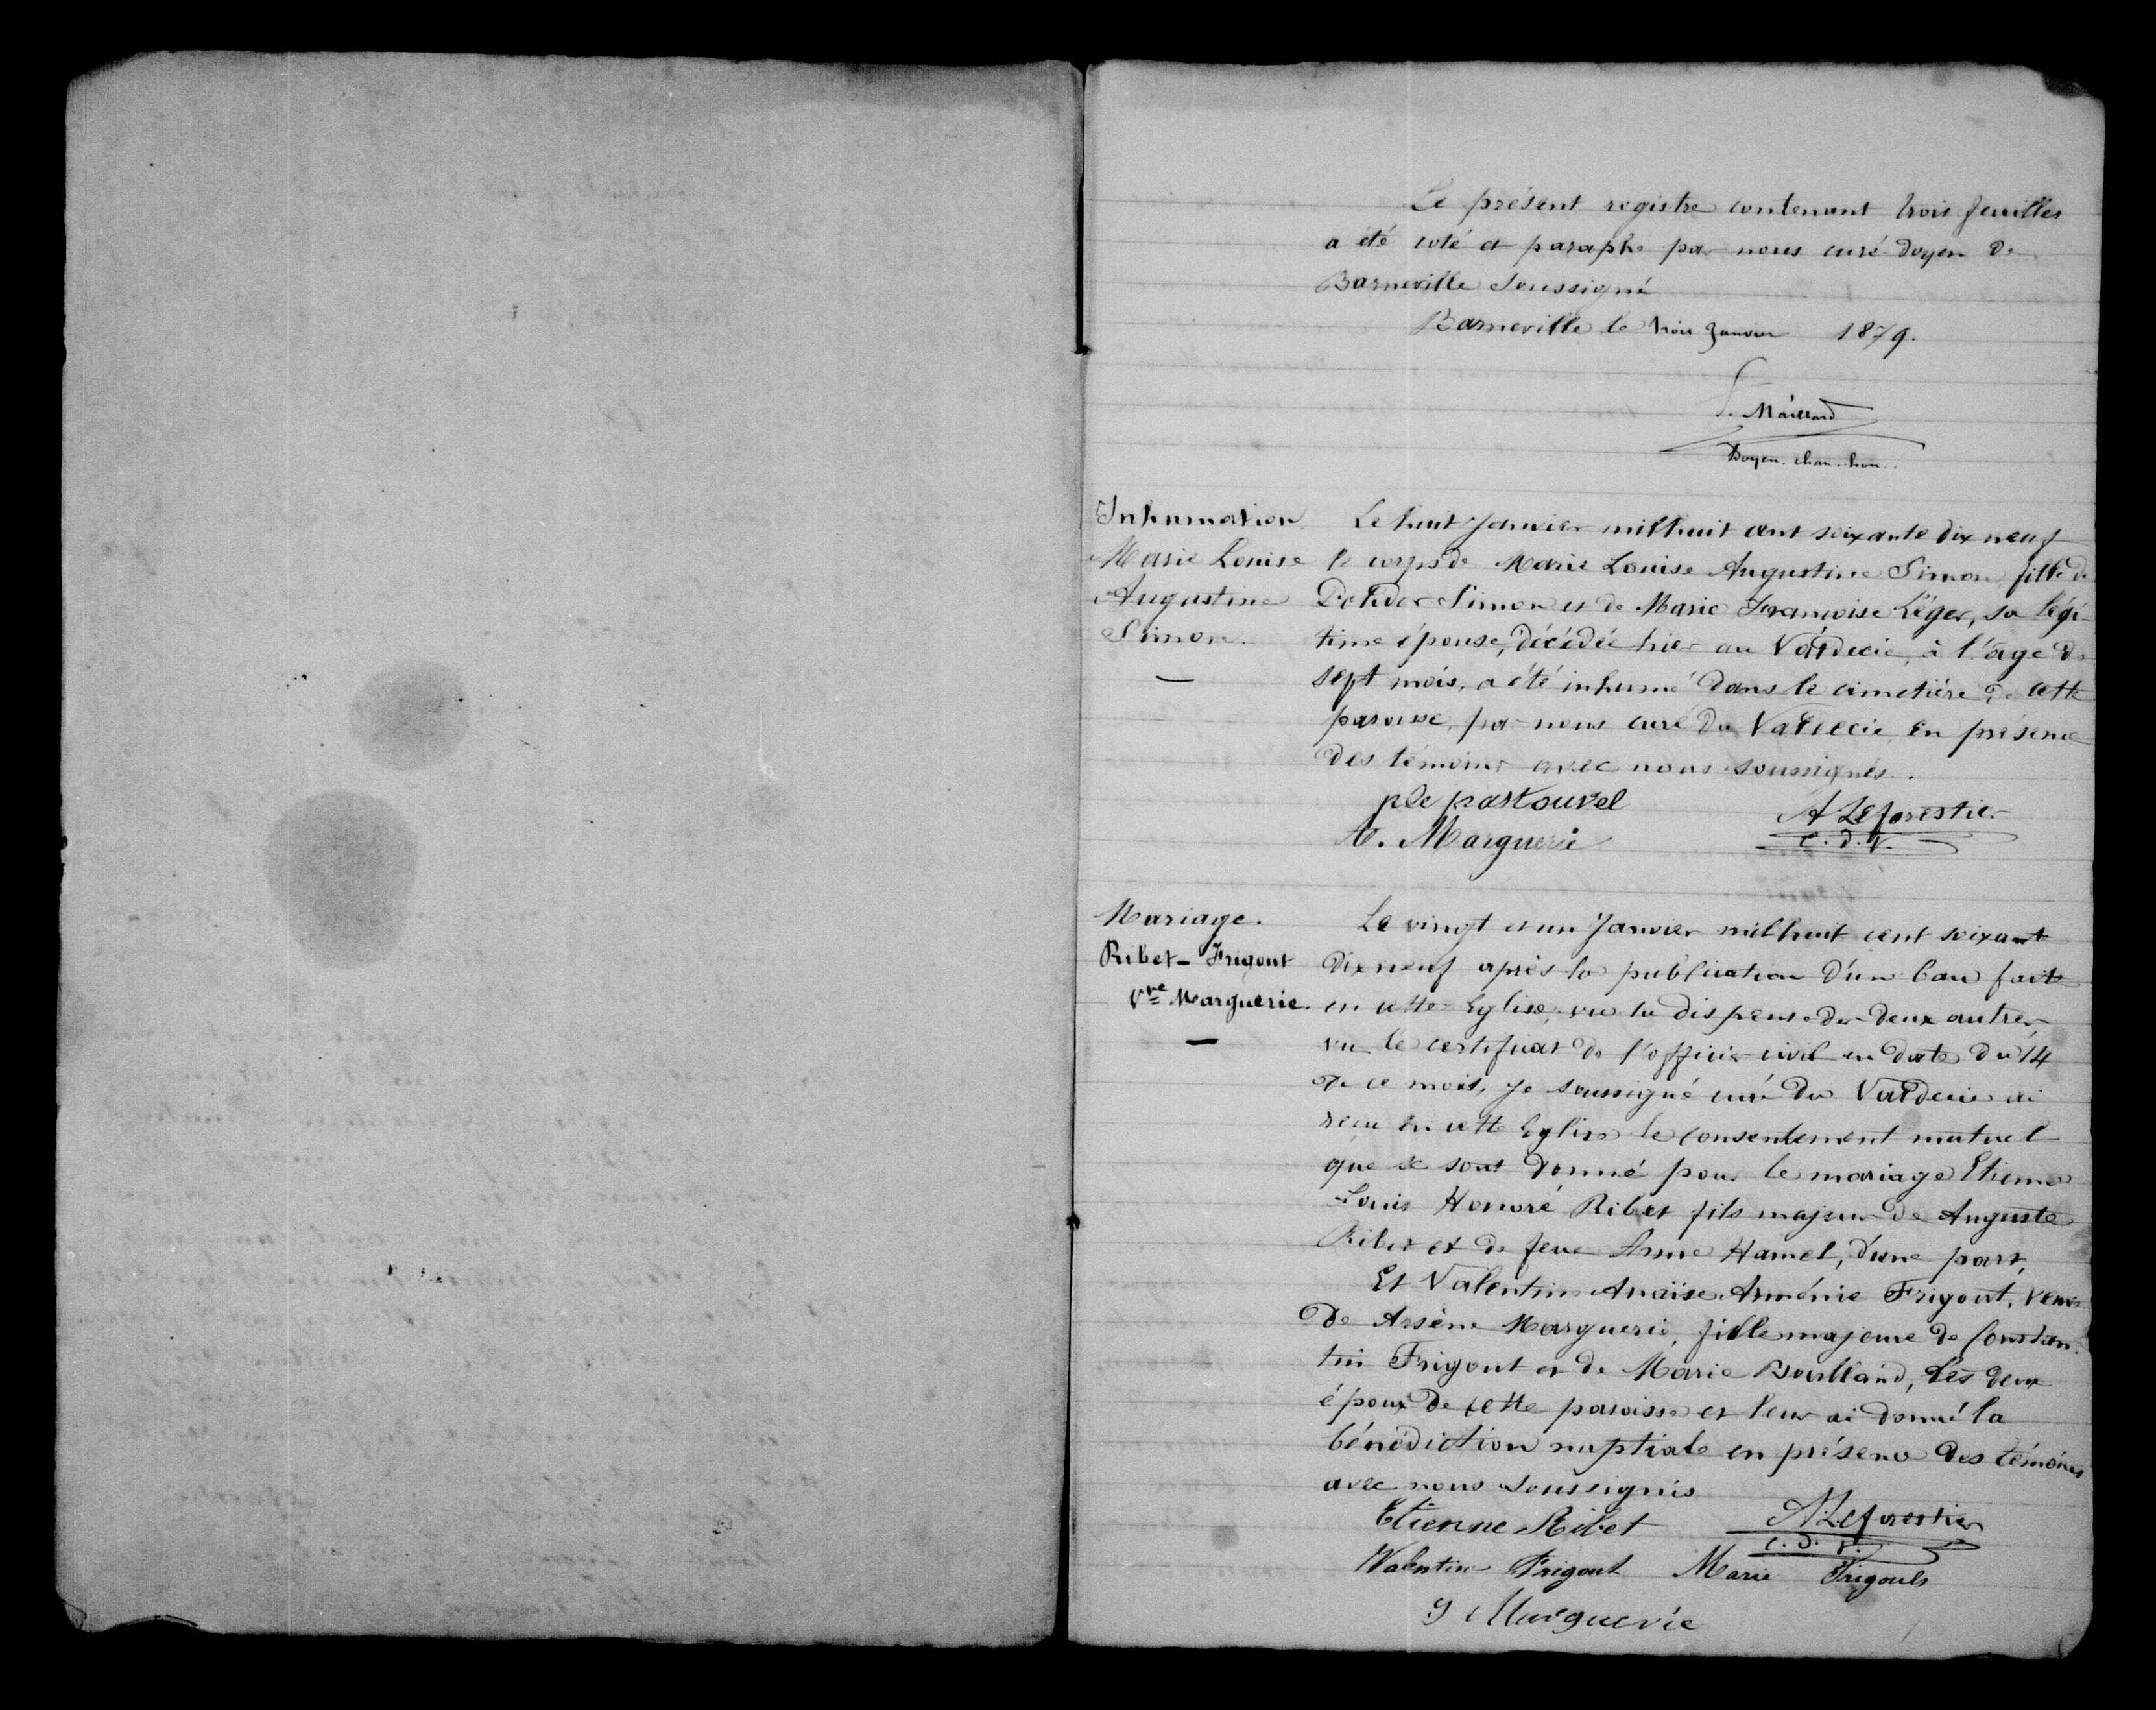 Le présent registre contenant trois feuilles
a été coté et paraphé par nous curé doyen de
Barneville soussigné
Barneville le trois Janvier 1879.
Maillard
Doyen. chan. hon.
Inhumation
Marie Louise
Augustine
Simon.
—
Le huit Janvier mil huit cent soixante dix neuf
le corps de Marie Louise Augustine Simon, fille de
Simon et de Marie Françoise Léger, sa légi-
time épouse, décédée hier au Valdecie, à l'âge de
sept mois, a été inhumé dans le cimetière de cette
paroisse, par nous curé du Valdecie en présence
des témoins avec nous soussignés.
A Leforestier
c. d. V.
Marguerie
Mariage.
Ribet - Frigout
Vve Marguerie.
—
Le vingt et un Janvier mil huit cent soixant
dix neuf après la publication d'un ban faite
en cette Eglise, vu la dispense des deux autres,
vu le certificat de l'officier civil en date du 14
de ce mois, je soussigné curé du Valdecie ai
reçu en cette Eglise le consentement mutuel
que se sont donné pour le mariage Etienne
Louis Honoré Ribet fils majeur de Auguste
Ribet et de feue Anne Hamel, d'une part,
Et Valentine Anaïse Arménie Frigout, veuve
de Arsène Marguerie, fille majeure de Constan-
tin Frigout et de Marie Boulland, les deux
époux de cette paroisse et leur ai donné la
bénédiction nuptiale en présence des témoins
avec nous soussignés
Etienne Ribet A Leforestier
c. d. V.
Valentine Frigout Marie Frigouts
Marguerie